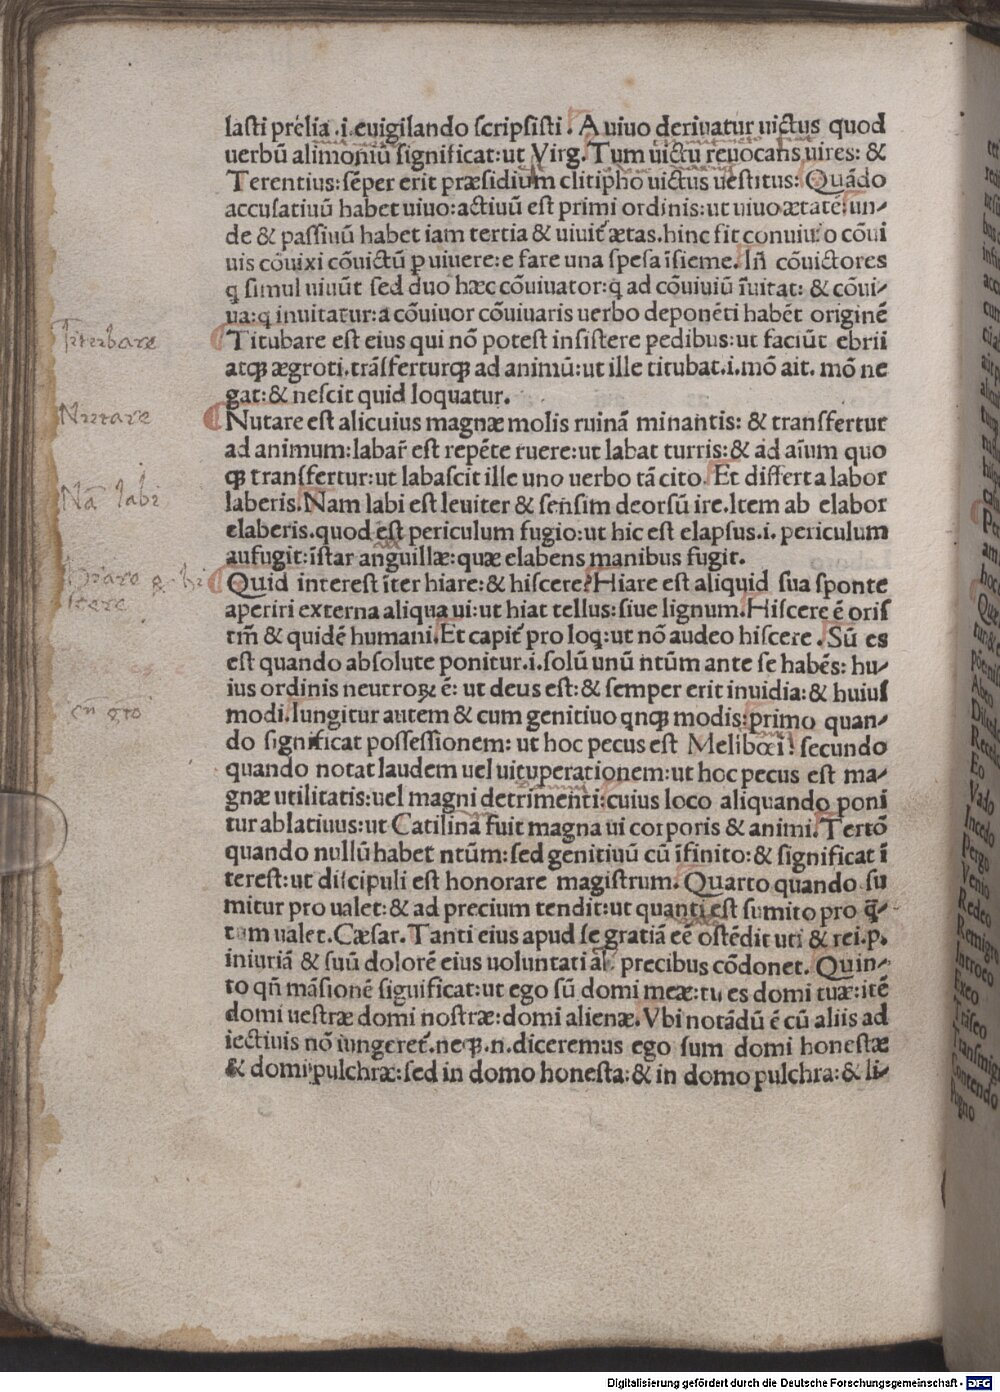 lasti prelia .i. euigilando scripsisti. A uiuo deriuatur uictus quod
uerbū alimoniū significat: ut Virg. Tum uictu reuocans uires: &
Terentius: sēper erit præsidium clitipho uictus uestitus: Quādo
accusatiuū habet uiuo: actiuū est primi ordinis: ut uiuo ætatē: un-
de & passiuū habet iam tertia & uiuit̄ ætas. hinc fit conuiuo cōui
uis cōuixi cōuictū ꝑ uiuere: e fare una spesa īsieme. Iñ cōuictores
q simul uiuūt sed duo hæc cōuiuator: q ad cōuiuiū īuitat: & cōui-
ua: q inuitatur: a cōuiuor cōuiuaris uerbo deponēti habēt originē
Titubare est eius qui nō potest insistere pedibus: ut faciūt ebrii
atqꝫ ægroti. trāsferturqꝫ ad animū: ut ille titubat. i. mō ait. mō ne
gat: & nescit quid loquatur.
Nutare est alicuius magnæ molis ruinā minantis: & transfertur
ad animum: labar̄ est repēte ruere: ut labat turris: & ad aīum quo
qꝫ transfertur: ut labascit ille uno uerbo tā cito. Et differt a labor
laberis. Nam labi est leuiter & sensim deorsū ire. Item ab elabor
elaberis. quod est periculum fugio: ut hic est elapsus. i. periculum
aufugit: īstar anguillæ: quæ elabens manibus fugit.
Quid interest īter hiare: & hiscere? Hiare est aliquid sua sponte
aperiri externa aliqua ui: ut hiat tellus: siue lignum. Hiscere ē oris
tm̄ & quidē humani. Et capit̄ pro loq: ut nō audeo hiscere. Sū es
est quando absolute ponitur. i. solū unū ntūm ante se habēs: hu-
ius ordinis neutroꝝ ē: ut deus est: & semper erit inuidia: & huius
modi. Iungitur autem & cum genitiuo qnqꝫ modis: primo quan-
do significat possessionem: ut hoc pecus est Meliboei: secundo
quando notat laudem uel uituperationem: ut hoc pecus est ma-
gnæ utilitatis: uel magni detrimenti: cuius loco aliquando poni
tur ablatiuus: ut Catilina fuit magna ui corporis & animi. Tertō
quando nullū habet ntūm: sed genitiuū cū īfinito: & significat ī
terest: ut discipuli est honorare magistrum. Quarto quando su
mitur pro ualet: & ad precium tendit: ut quanti est sumito pro q̄-
tum ualet. Cæsar. Tanti eius apud se gratiā eē ostēdit uti & rei. p.
iniuriā & suū dolorē eius uoluntati precibus cōdonet. Quin-
to qñ māsionē siguificat: ut ego sū domi meæ: tu es domi tuæ: itē
domi uestræ domi nostræ: domi alienæ. Vbi notādū ē cū aliis ad
iectiuis nō iungeret̄. neqꝫ .n. diceremus ego sum domi honestæ
& domi pulchræ: sed in domo honesta: & in domo pulchra: & li-
Titubare
Nutare
Nā labi
Hiare & hi
scere
cū gto
Vado
Incedo
Pergo
Venio
Redeo
Remigro
Introeo
Exeo
Trāseo
Contendo
Pugno
Digitalisierung gefördert durch die Deutsche Forschungsgemeinschaft - DFG